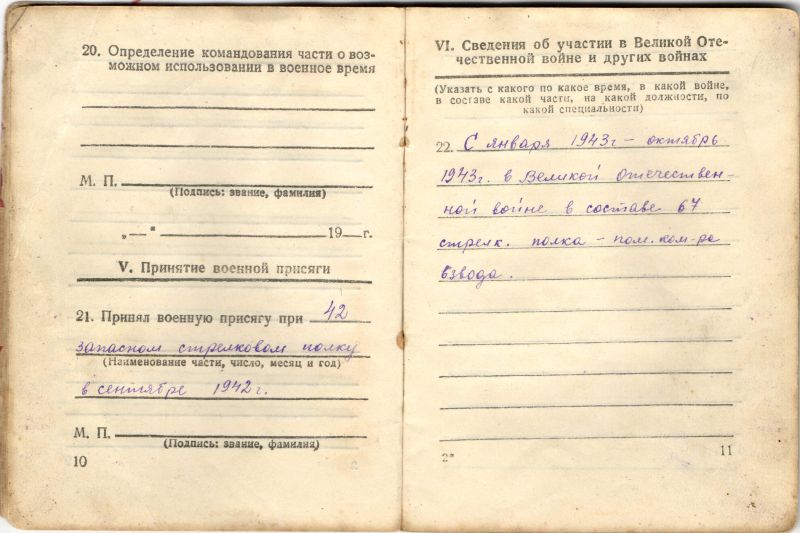 20. Определение командования части о воз-
можном использовании в военное время
М. П.
(Подпись: звание, фамилия)
„—“ 19 г.
V. Принятие военной присяги
21. Принял военную присягу при 42
запасном стрелковом полку
(Наименование части, число, месяц и год)
в сентябре 1942 г.
М. П.
(Подпись: звание, фамилия)
10
VI. Сведения об участии в Великой Оте-
чественной войне и других войнах
(Указать с какого по какое время, в какой войне,
в составе какой части, на какой должности, по
какой специальности)
22. С января 1943 г – октябрь
1943 г. в Великой Отечествен-
ной войне в составе 67
стрелк. полка – пом. ком-ра
взвода.
2*
11